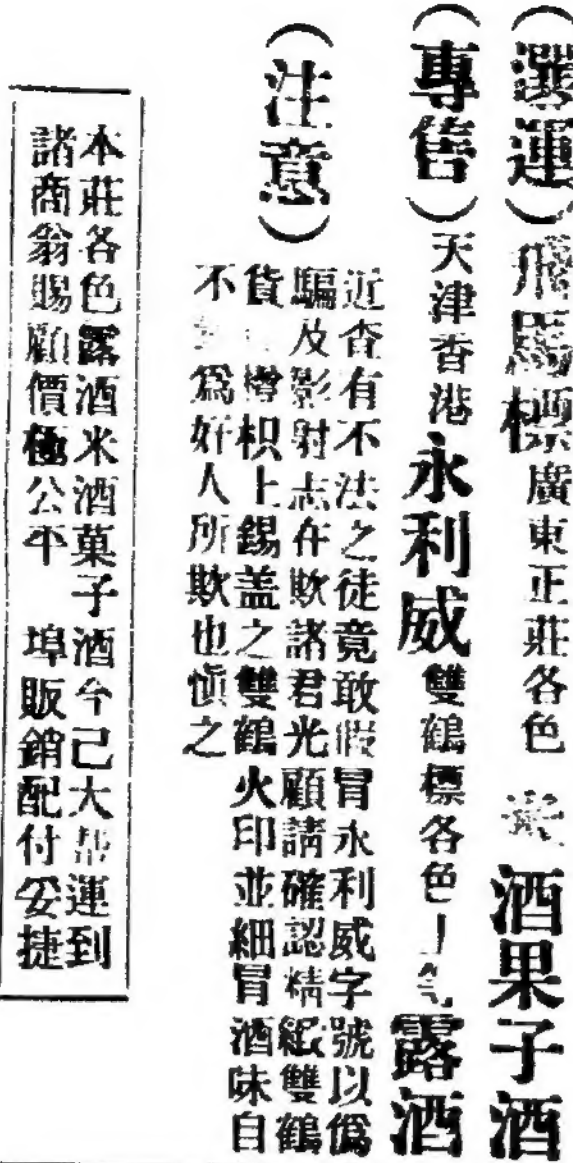 （選運）飛馬標廣東正莊各色酒果子酒
（專售）天津香港永利威雙鶴標各色露酒
（注意）
近查有不法之徒竟敢假冒永利威字號以僞
騙及影射志在欺諸君光顧請確認精緻雙鶴
貨樽枳上錫盖之雙鶴火印並細冒酒味自
不爲好人所欺也慎之
本莊各色露酒米酒菓子酒今已大帮運到
諸商翁賜顧價極公平 埠販銷配付妥捷